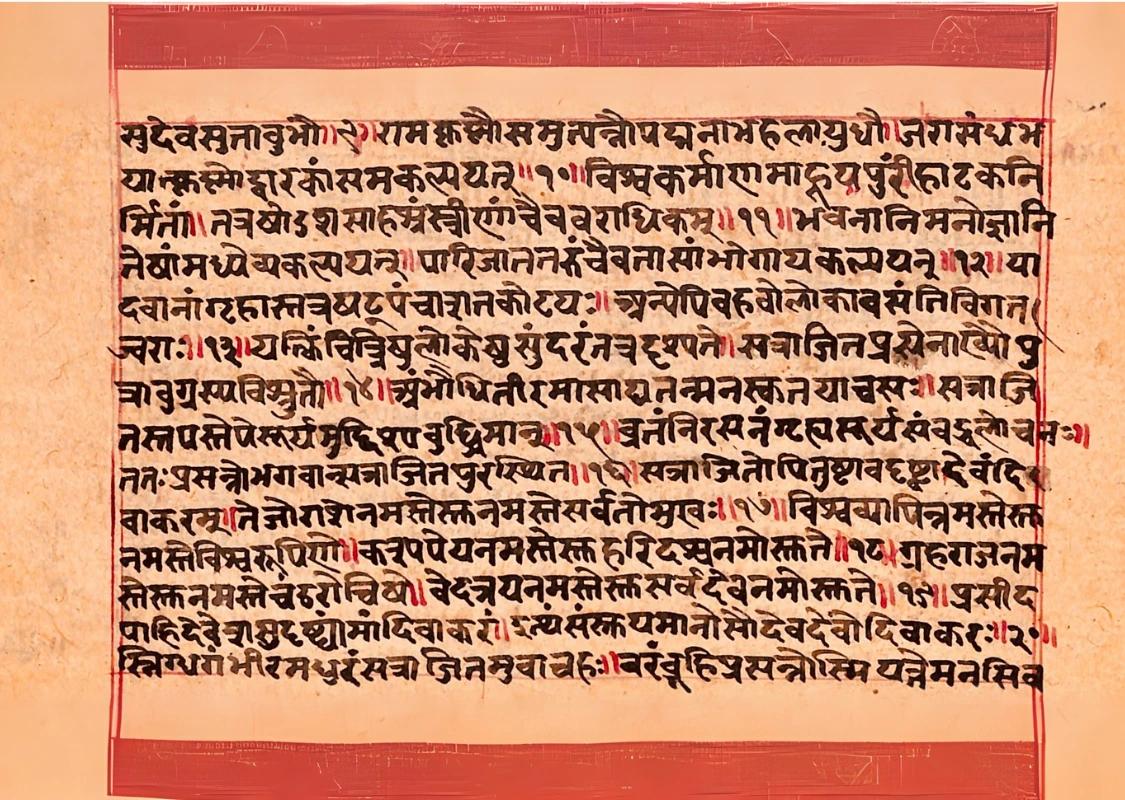 सुदेवसुतावुभौ॥९॥रामकृष्णौसमुत्पन्नौपद्मनाभहलायुधौ॥जरासंधभ
यात्कृष्णोद्वारकांसमकल्पयत्॥१०॥विश्वकर्माणमाहूयपुरींहाटकनि
र्मितां॥तत्रषोडशसाहस्रंस्त्रीणांचैवचराधिकम्॥११॥भवनानिमनोज्ञानि
तेषांमध्येव्यकल्पयत्॥पारिजाततरुंचैवतासांभोगायकल्पयत्॥१२॥या
दवानांगृहास्तत्रषट्पंचाशतकोटयः॥अन्येपिबहवोलोकावसंतिविगत
ज्वराः॥१३॥यत्किंचित्त्रिषुलोकेषुसुंदरंतत्रदृश्यते॥सत्राजितप्रसेनाख्यौपु
त्रावुग्रस्यविश्रुतौ॥१४॥अंभोधितीरमासाद्यतन्मनस्कतयाचसः॥सत्राजि
तस्तपस्तेपेसूर्यमुद्दिश्यबुद्धिमान्॥१५॥व्रतंनिरसनंगृह्यसूर्यसंबद्धलोचनः॥
ततःप्रसन्नोभगवान्सत्राजितपुरस्थित॥१६॥सत्राजितोपितुष्टावदृष्ट्वादेवंदि
वाकरम्॥तेजोराशेनमस्तेस्तुनमस्तेसर्वतोमुखः॥१७॥विश्वव्यापिन्नमस्तेस्तु
नमस्तेविश्वरूपिणे॥कश्यपेयनमस्तेस्तुहरिदश्वनमोस्तुते॥१८॥ग्रहराजनम
स्तेस्तुनमस्तेचंडरोचिषे॥वेदत्रयनमस्तेस्तुसर्वदेवनमोस्तुते॥१९॥प्रसीद
पाहिदेवेशसुदृष्ट्यामांदिवाकर॥इत्थंसंस्तूयमानोसौदेवदेवोदिवाकरः॥२०॥
स्निग्धगंभीरमधुरंसत्राजितमुवाचहः॥वरंब्रूहिप्रसन्नोस्मियत्तेमनसिव